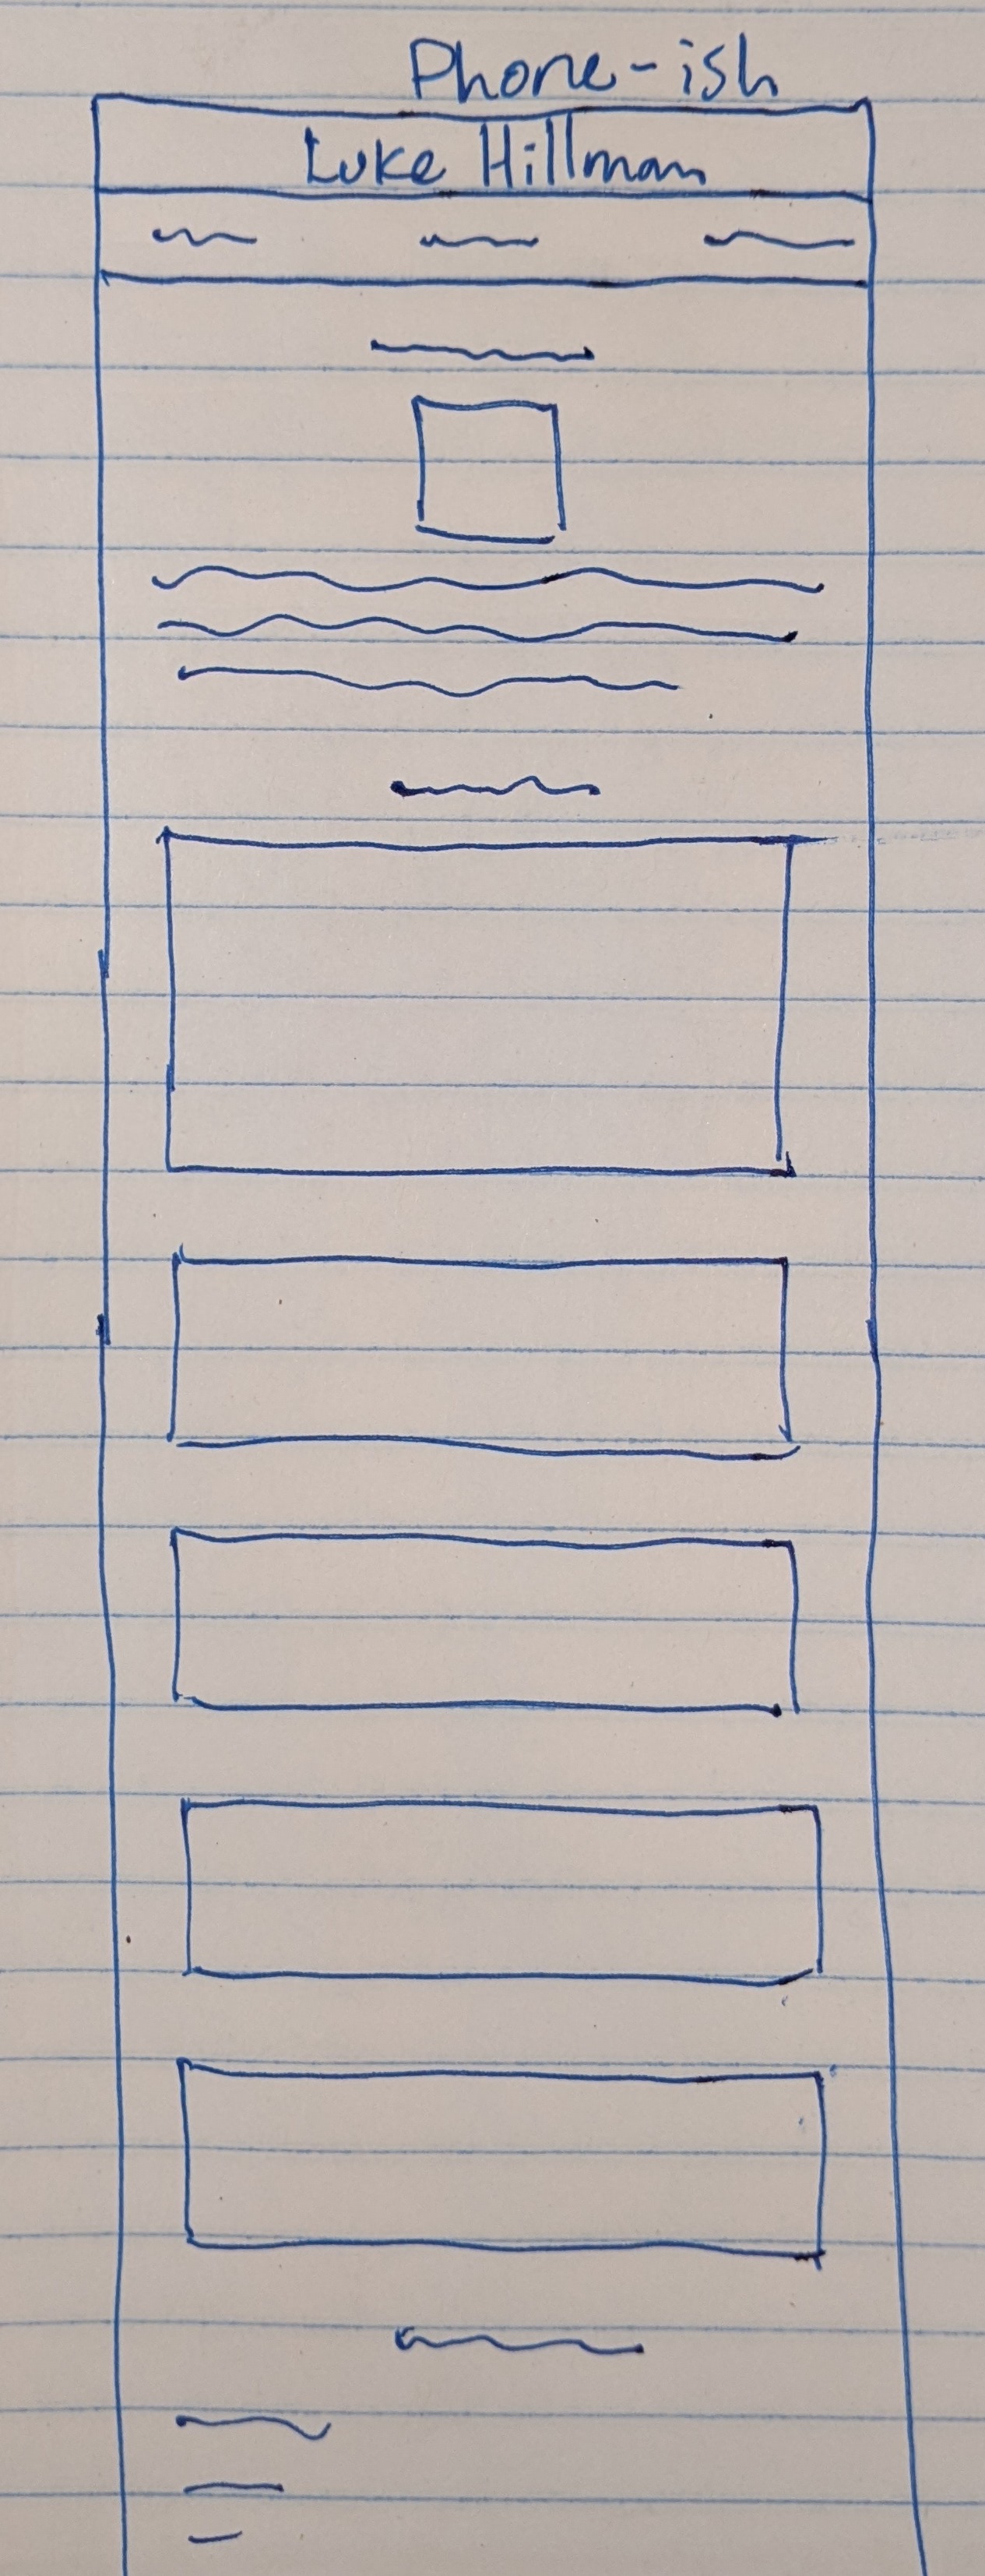 Phone-ish
Luke Hillman